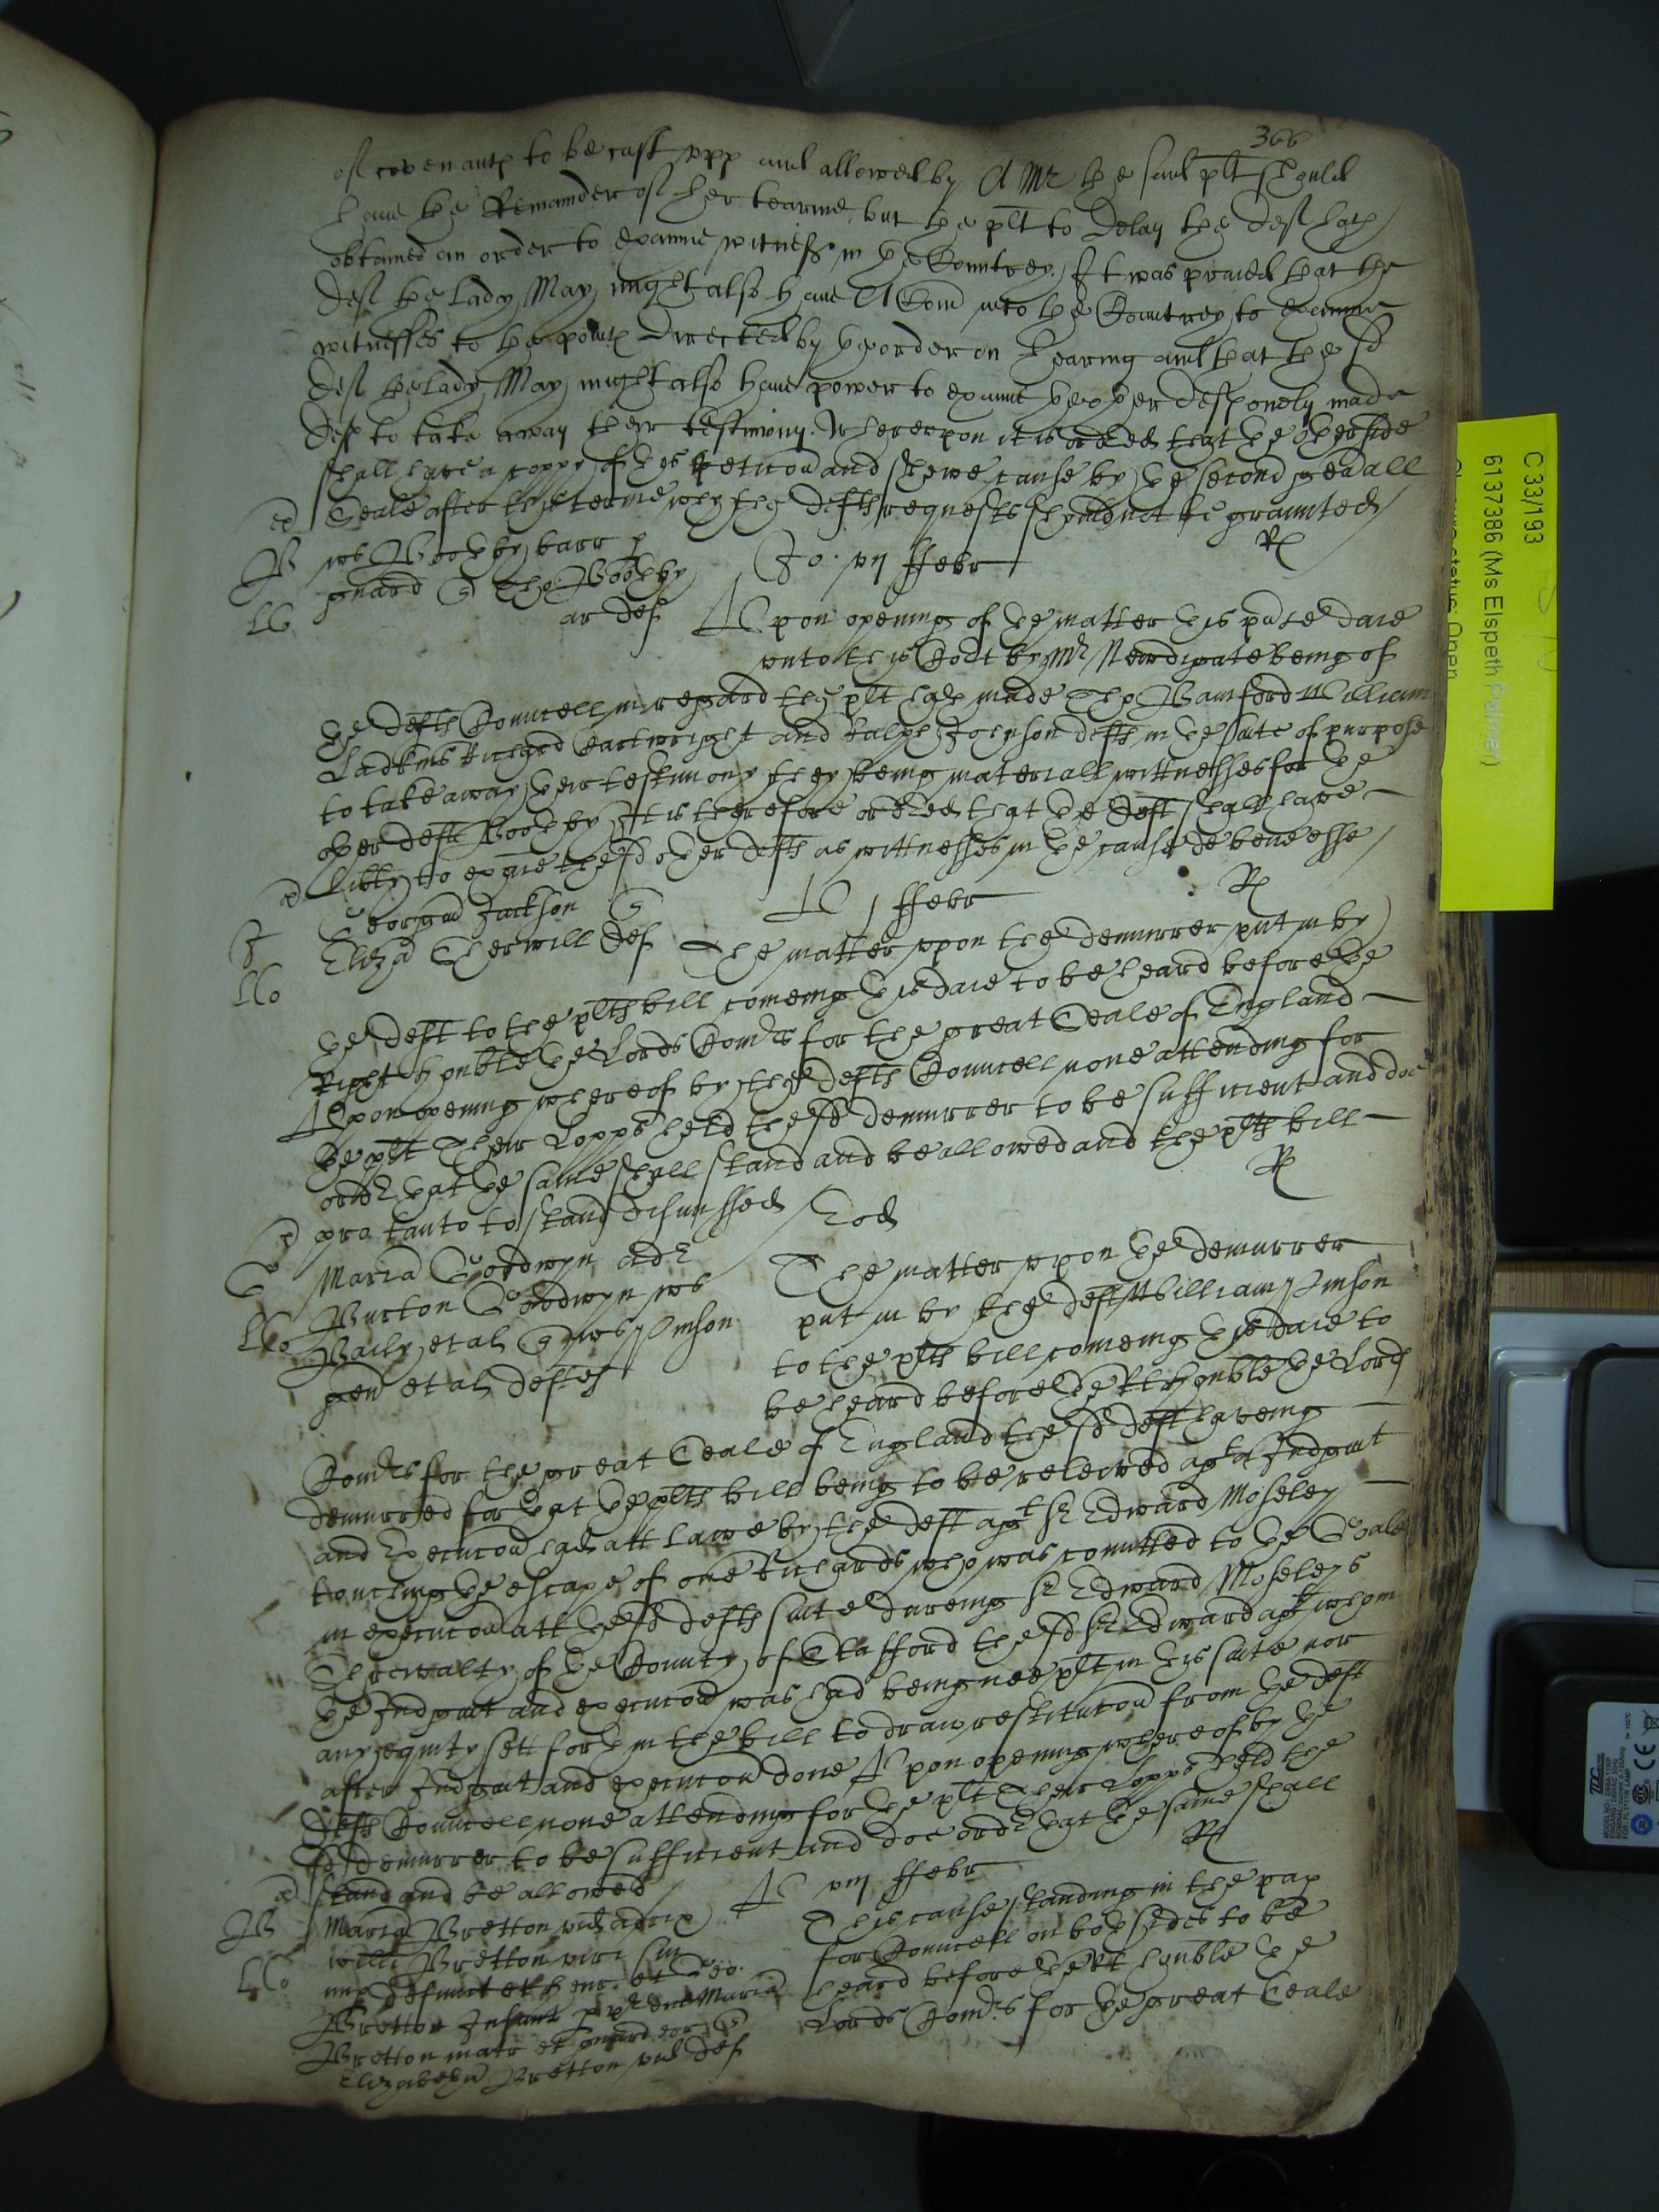 366
of covenants to be cast upp and allowed by A Mr the said plt should
have the Remainder of her tearme, but the plt to Delay the Deft hath
obtained an order to examine witness in the Countrey, It was praied that the
Deft the Lady May might also have A Com into the Countrey to examine
witnesses to the points Directed by the order on hearing and that the sd
Deft the Lady May might also have power to examine the other Defts onely made
Defts to take away their testimony. Whereupon it is ordred that the other side
shall have a coppy of this peticon and shewe cause by the second genall
Seale after this terme why the defts requests should not be graunted
ws Boothby barr p
guard Tho: Boothby
ar Def
Jo. vij ffebr
Upon opening of the matter this present daie
unto this Court by Mr Newdigate being of
the defts Councell in regard the plt hath made Tho Bamford William
Ladkins Richard Cartwright and Ralph Johnson defts in the suite of purpose
to take away their testimony they being materiall wittnesses for the
other deft Boothby It is therefore ordred that the deft shall have
libty to exaie the sd other defts as wittnesses in the cause de bene esse
Georgius Jackson
Eliza Sherwill Def
U j ffebr
The matter uppon the demurrer put in by
the deft to the plts bill comeing this daie to be heard before the
Right honble the Lords Comrs for the great Seale of England
Upon opening whereof by the defts Councell none attending for
the plt Their Lopps held the sd demurrer to be sufficient and doe
order that the same shall stand and be allowed and the plts bill
pro tanto to stand dismissed
Eod
Maria Goodwyn adr
Burton Goodwyn ws
Baily et al ws Jinson
gen et al deftes
The matter uppon the demurrer
put in by the deft William Jinson
to the plts bill comeing this daie to
be heard before the Rt honble the Lords
Comrs for the great Seale of England the sd deft haveing
demurred for that the plts bill being to be releived agt a Judgmt
and Execucon had att lawe by the deft agt Sr Edward Moseley
touching the escape of one Richards who was comitted to the Goale
in execucon att the sd defts suite dureing Sr Edward Moseleys
Shrewalty of the County of Stafford the sd Sr Edward agt whom
the Judgmt and execucon was had being noe plt in this suite nor
any equity sett forth in the bill to draw restitucon from the deft
after Judgmt and execucon done Upon opening whereof by the
defts Councell none attending for the plt Their Lopps held the
sd demurrer to be sufficient and doe order that the same shall
stand and be allowed
U viij ffebr
Maria Bretton vid adcix
willi Bretton viri sui
nup defunct et Henr. et Geo.
Bretton Infant p pr Maria
Bretton matr et guard eor
Elizabetha Bretton vid Def
This cause standing in the pap
for Councell on both sides to be
heard before the Rt honble the
Lords Comrs for the great Seale
C 33/193
6137386 (Ms Elspeth Palmer)
Open